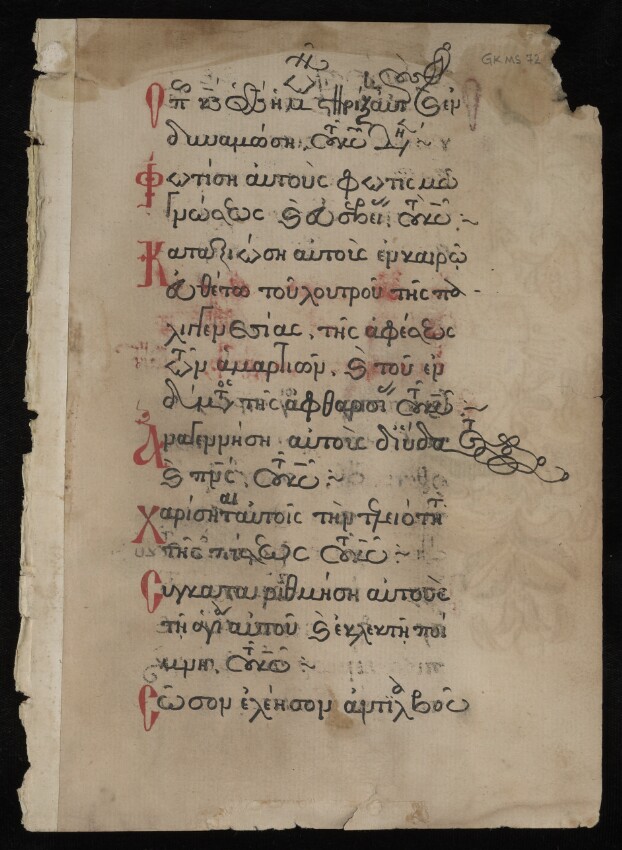 GKMS 72
δυναμώση, τοῦ κυ
Φωτίση αὐτοὺς φωτισμῷ
γνώσεως καὶ εὐσεβεί τοῦ κυ
Καταξιώση αὐτοὺς ἐν καιρῷ
εὐθέτω τοῦ λουτροῦ τῆς πα
λιγγενεσίας, τῆς ἀφέσεως
τῶν ἁμαρτιῶν, καὶ τοῦ ἐν
δύμ τῆς ἀφθαρσί τοῦ κυ
Ἀναγεννήση αὐτοὺς δι ὕδατ
καὶ πνς, τοῦ κυ
Χαρίσηται αὐτοῖς τὴν τελειότητ
τῆς πίστεως τοῦ κυ
Συγκαταριθμήση αὐτοὺς
τῇ ἁγί αὐτοῦ καὶ ἐκλεκτῇ ποί
μνη, τοῦ κυ
Σῶσον ἐλέησον ἀντιλαβοῦ